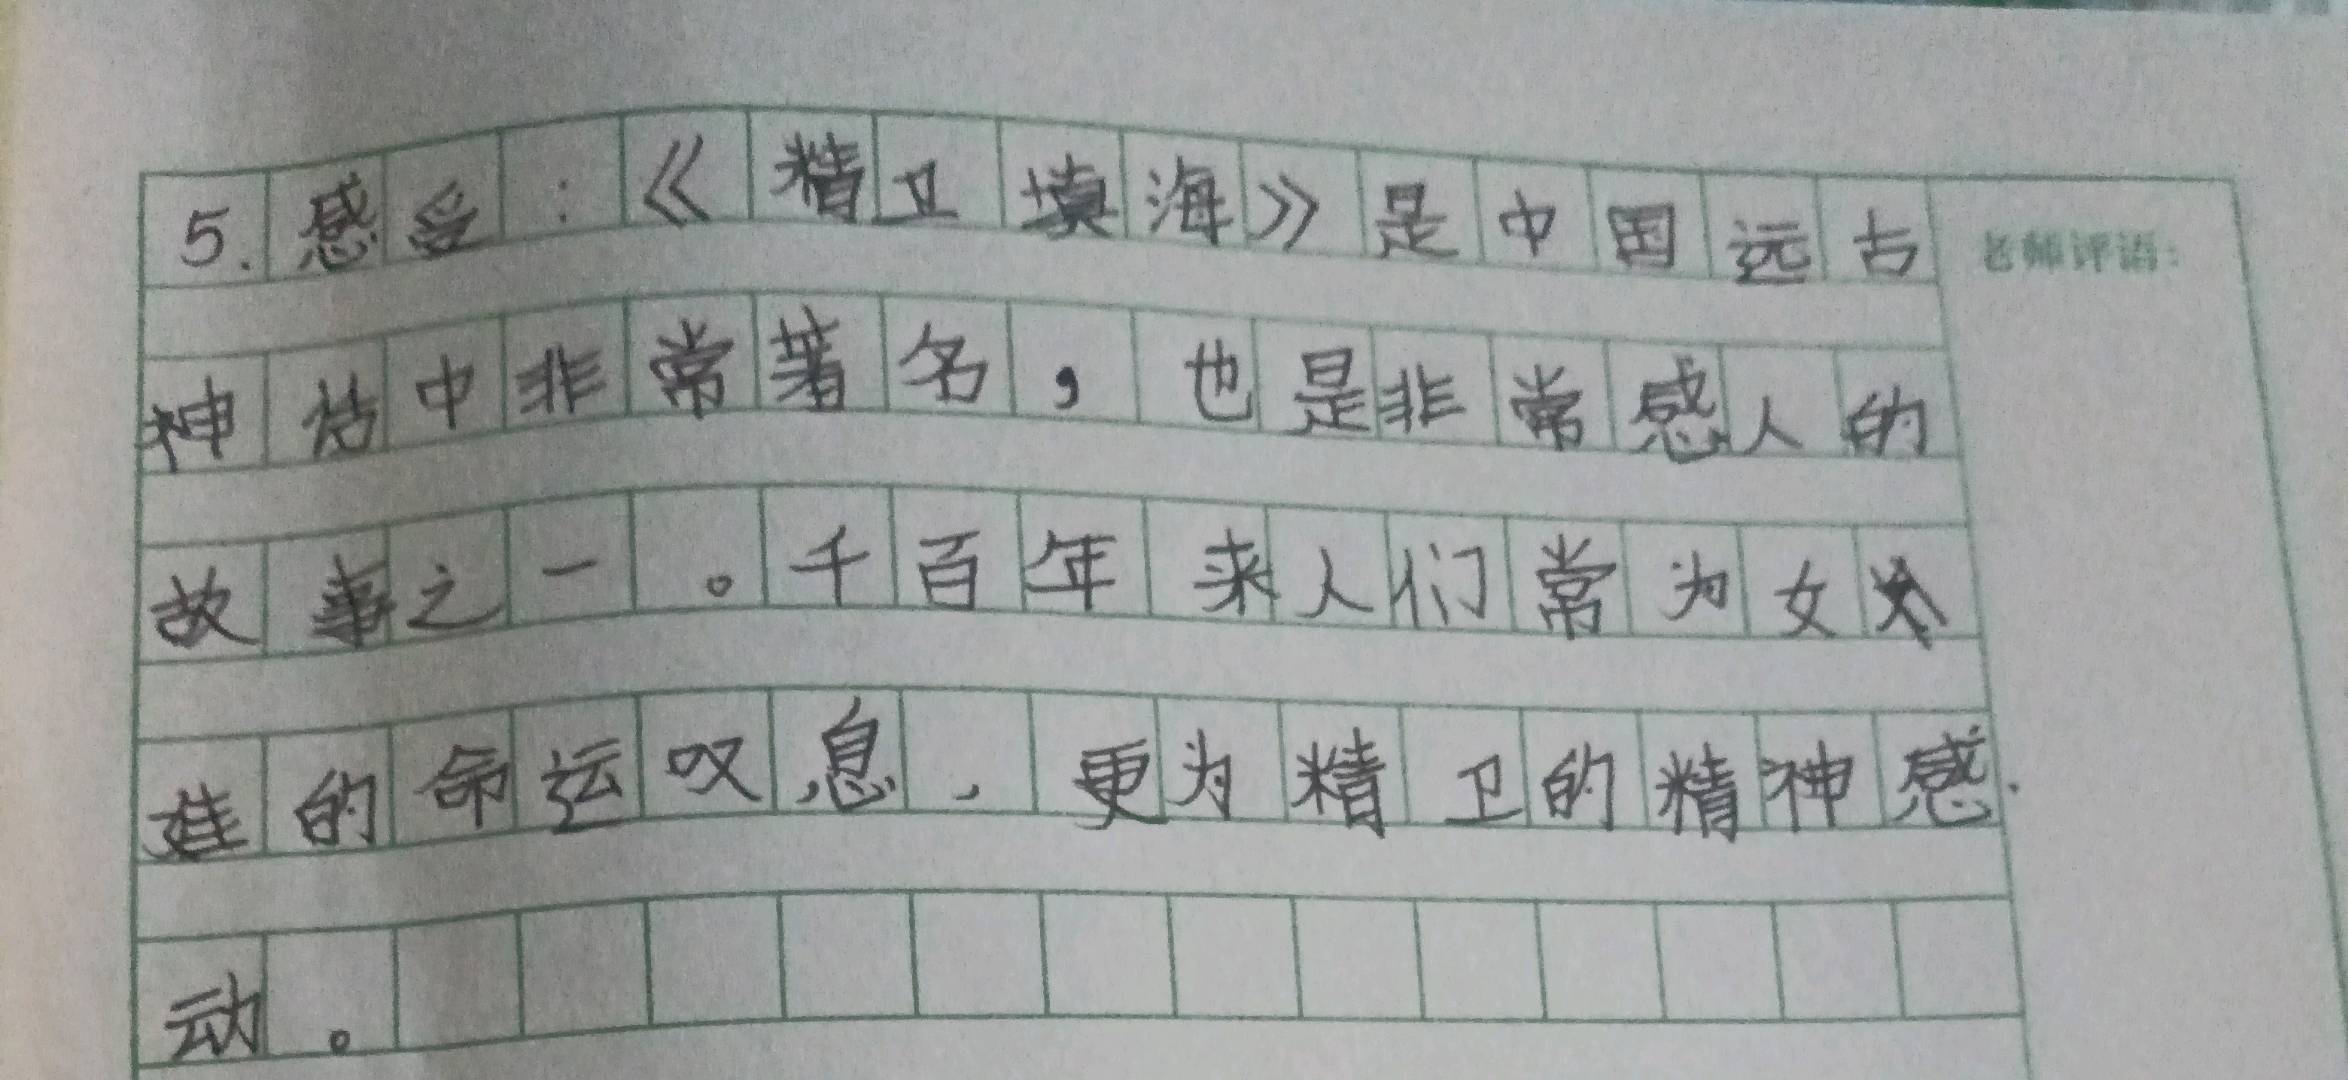 5.感受:《精卫填海》是中国远古
老师评语:
神话中非常著名,也是非常感人的
故事之一。千百年来人们常为女
娃的命运叹息,更为精卫的精神感
动。